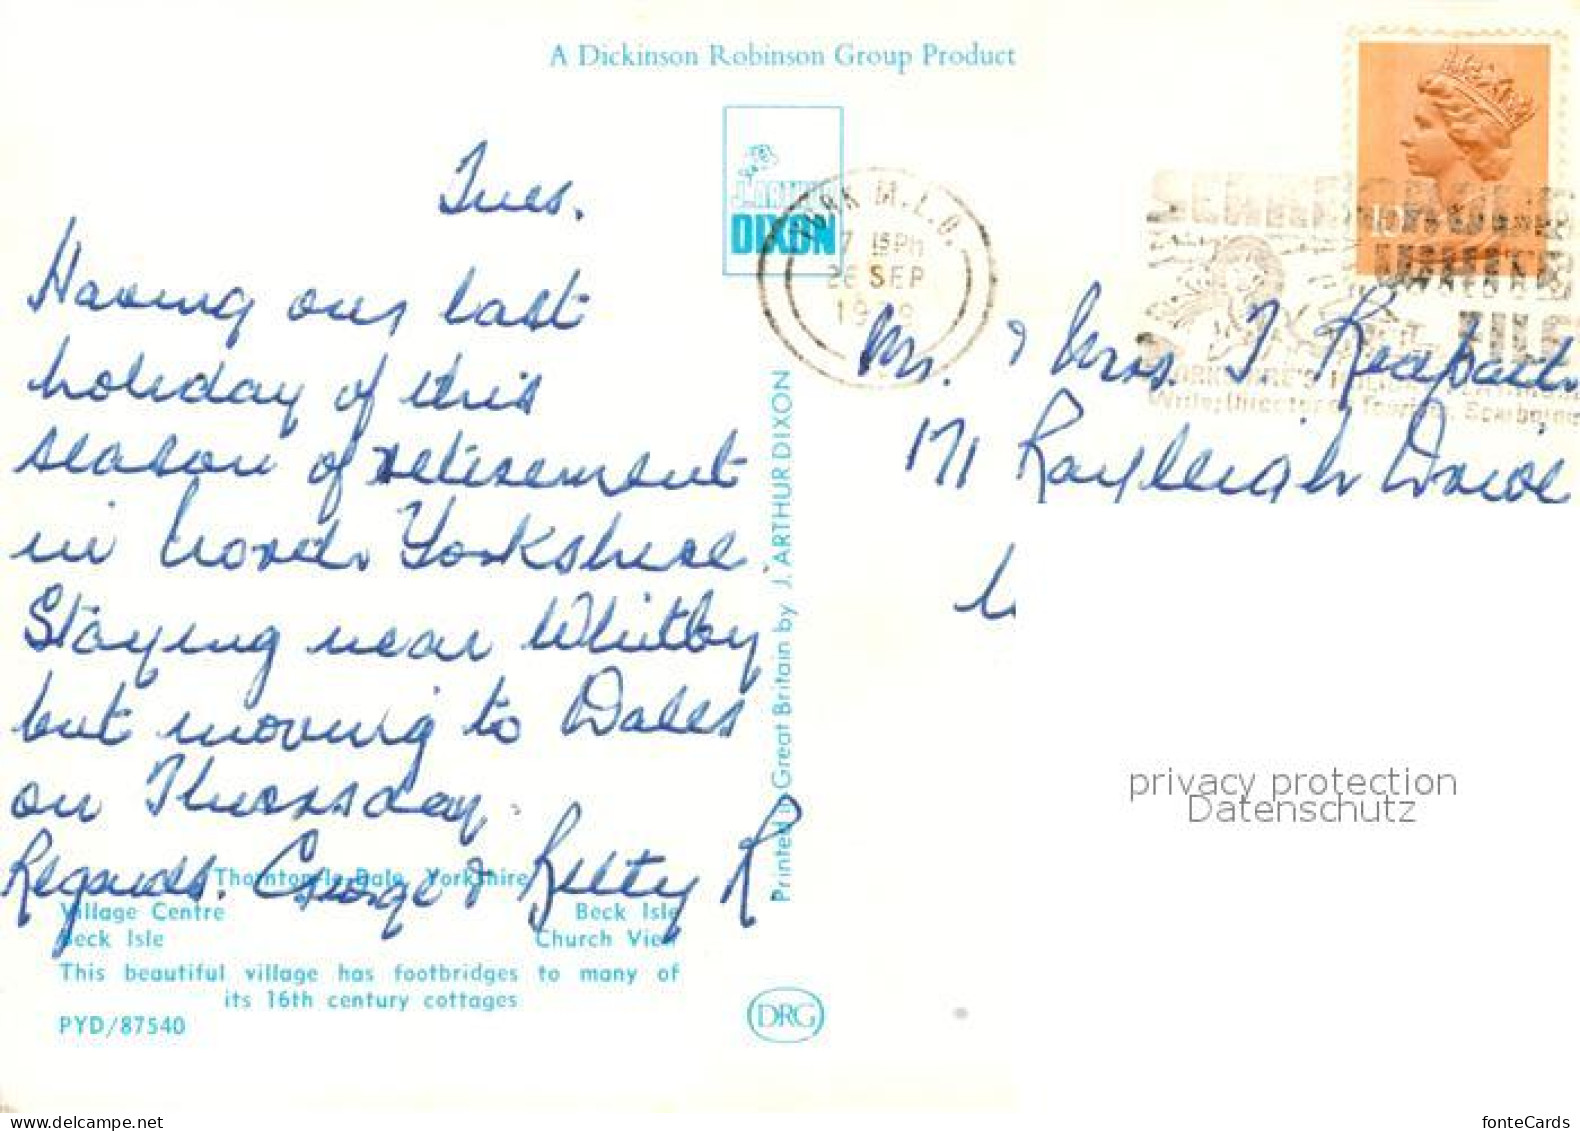 A Dickinson Robinson Group Product
J. ARTHUR
DIXON
YORK M.L.O.
7 15PM
26 SEP
Tues.
Having our last
holiday of this
season of retirement
in North Yorkshire.
Staying near Whitby
but moving to Dales
on Thursday.
Regards. George & Betty R
Thornton-le-Dale, Yorkshire
Village Centre
Beck Isle
Beck Isle
Church View
This beautiful village has footbridges to many of
its 16th century cottages
PYD/87540
Printed in Great Britain by J. ARTHUR DIXON
DRG
Mr. & Mrs. T Redpath,
171 Rayleigh Drive
privacy protection
Datenschutz
fonteCards